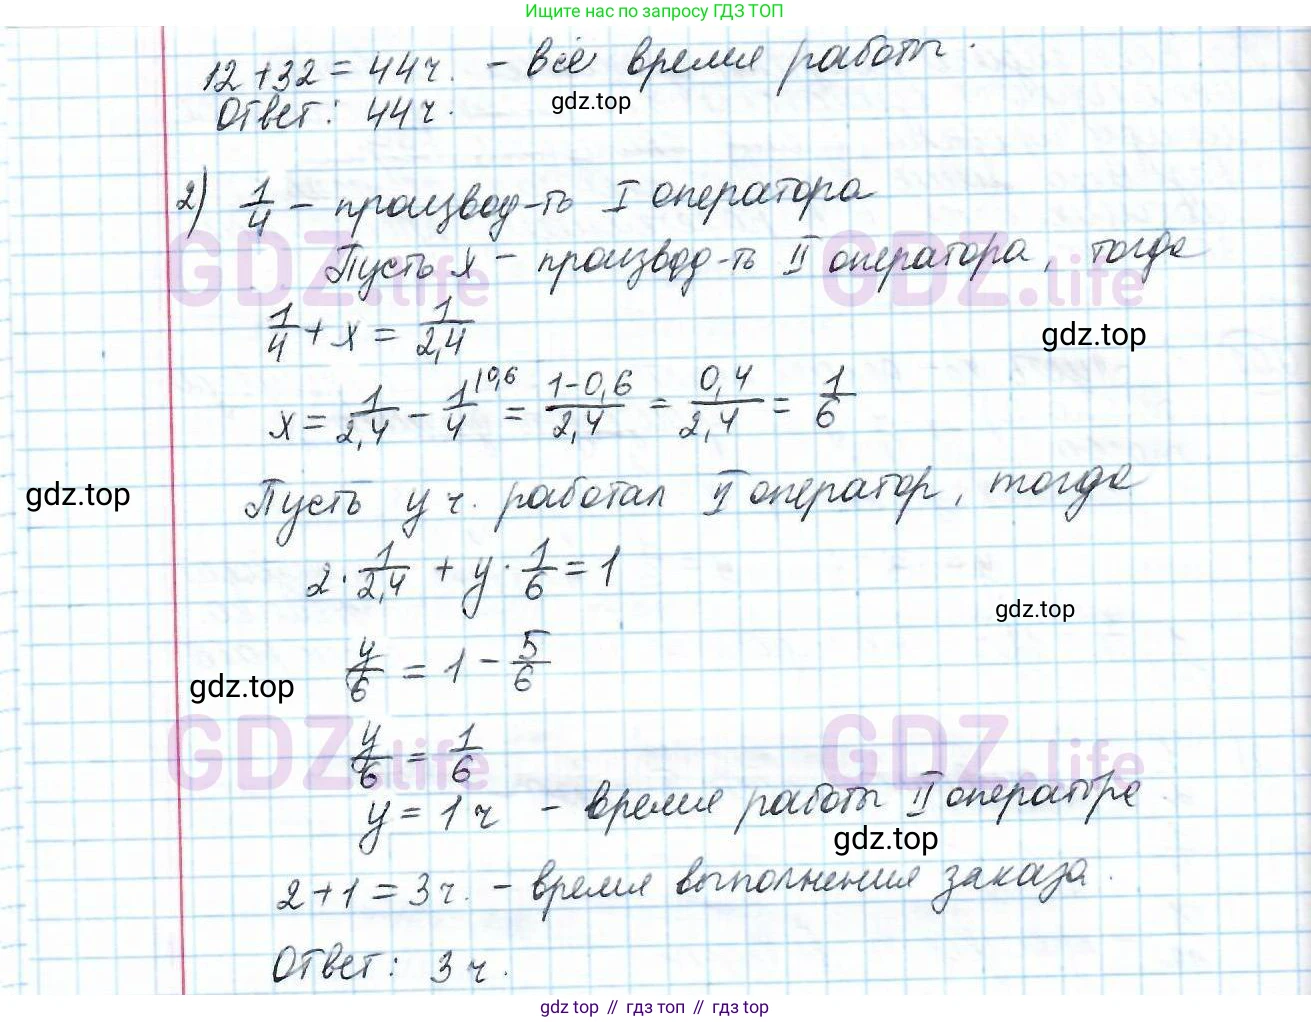 Ищите нас по запросу ГДЗ ТОП
12+32=44ч. - всё время работы.
Ответ: 44ч.
gdz.top
2) 1/4 - производ-ть I оператора
GDZ.life GDZ.life
Пусть x - производ-ть II оператора, тогда
1/4 + x = 1/2,4
gdz.top
x = 1/2,4 - 1/4 |0,6 = 1-0,6/2,4 = 0,4/2,4 = 1/6
gdz.top
Пусть y ч. работал II оператор, тогда
2 · 1/2,4 + y · 1/6 = 1
gdz.top
y/6 = 1 - 5/6
gdz.top
GDZ.life GDZ.life
y/6 = 1/6
y = 1 ч - время работы II оператора
gdz.top
2+1=3ч. - время выполнения заказа.
Ответ: 3 ч.
gdz.top // гдз топ // гдз.top